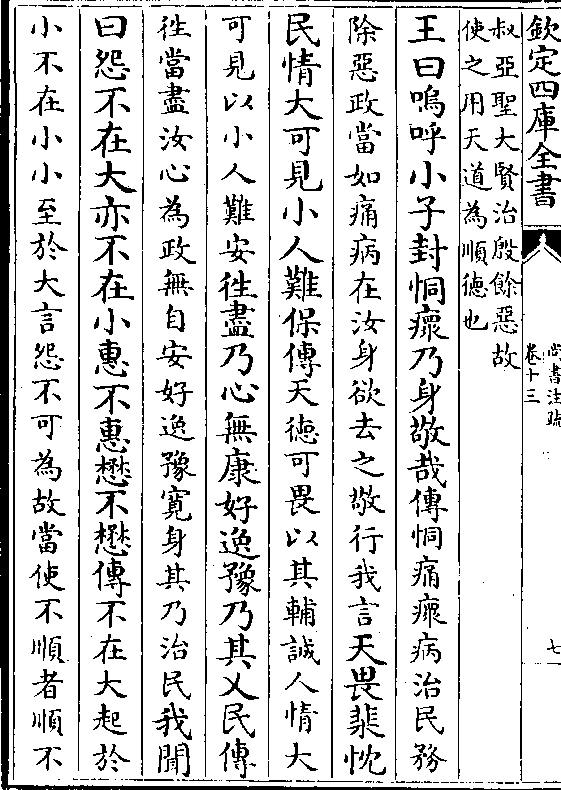 欽定四庫全書
尚書注疏
卷十三
七
叔亞聖大賢治殷餘惡故
使之用天道為順德也
王曰嗚呼小子封恫瘝乃身敬哉傳恫痛瘝病治民務
除惡政當如痛病在汝身欲去之敬行我言天畏棐忱
民情大可見小人難保傳天徳可畏以其輔誠人情大
可見以小人難安徃盡乃心無康好逸豫乃其乂民傳
徃當盡汝心為政無自安好逸豫寛身其乃治民我聞
曰怨不在大亦不在小惠不惠懋不懋傳不在大起於
小不在小小至於大言怨不可為故當使不順者順不